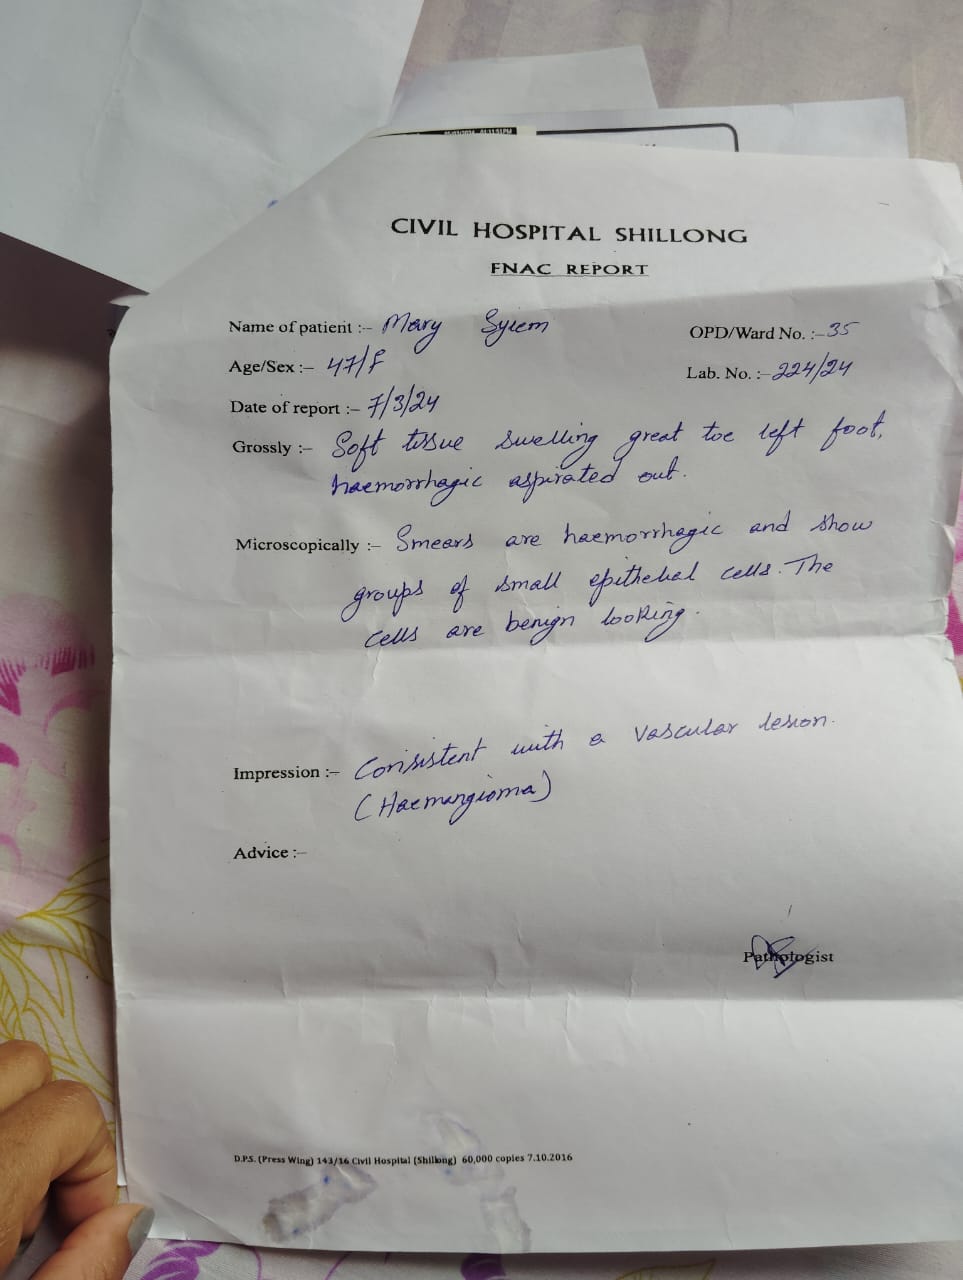 CIVIL HOSPITAL SHILLONG
FNAC REPORT
Name of patient :- Mary Syiem OPD/Ward No. :- 35
Age/Sex :- 47/F Lab. No. :- 224/24
Date of report :- 7/3/24
Grossly :- Soft tissue swelling great toe left foot,
haemorrhagic aspirated out.
Microscopically :- Smears are haemorrhagic and show
groups of small epithelial cells. The
cells are benign looking.
Impression :- Consistent with a vascular lesion.
(Haemangioma)
Advice :-
Pathologist
D.P.S. (Press Wing) 143/16 Civil Hospital (Shillong) 60,000 copies 7.10.2016